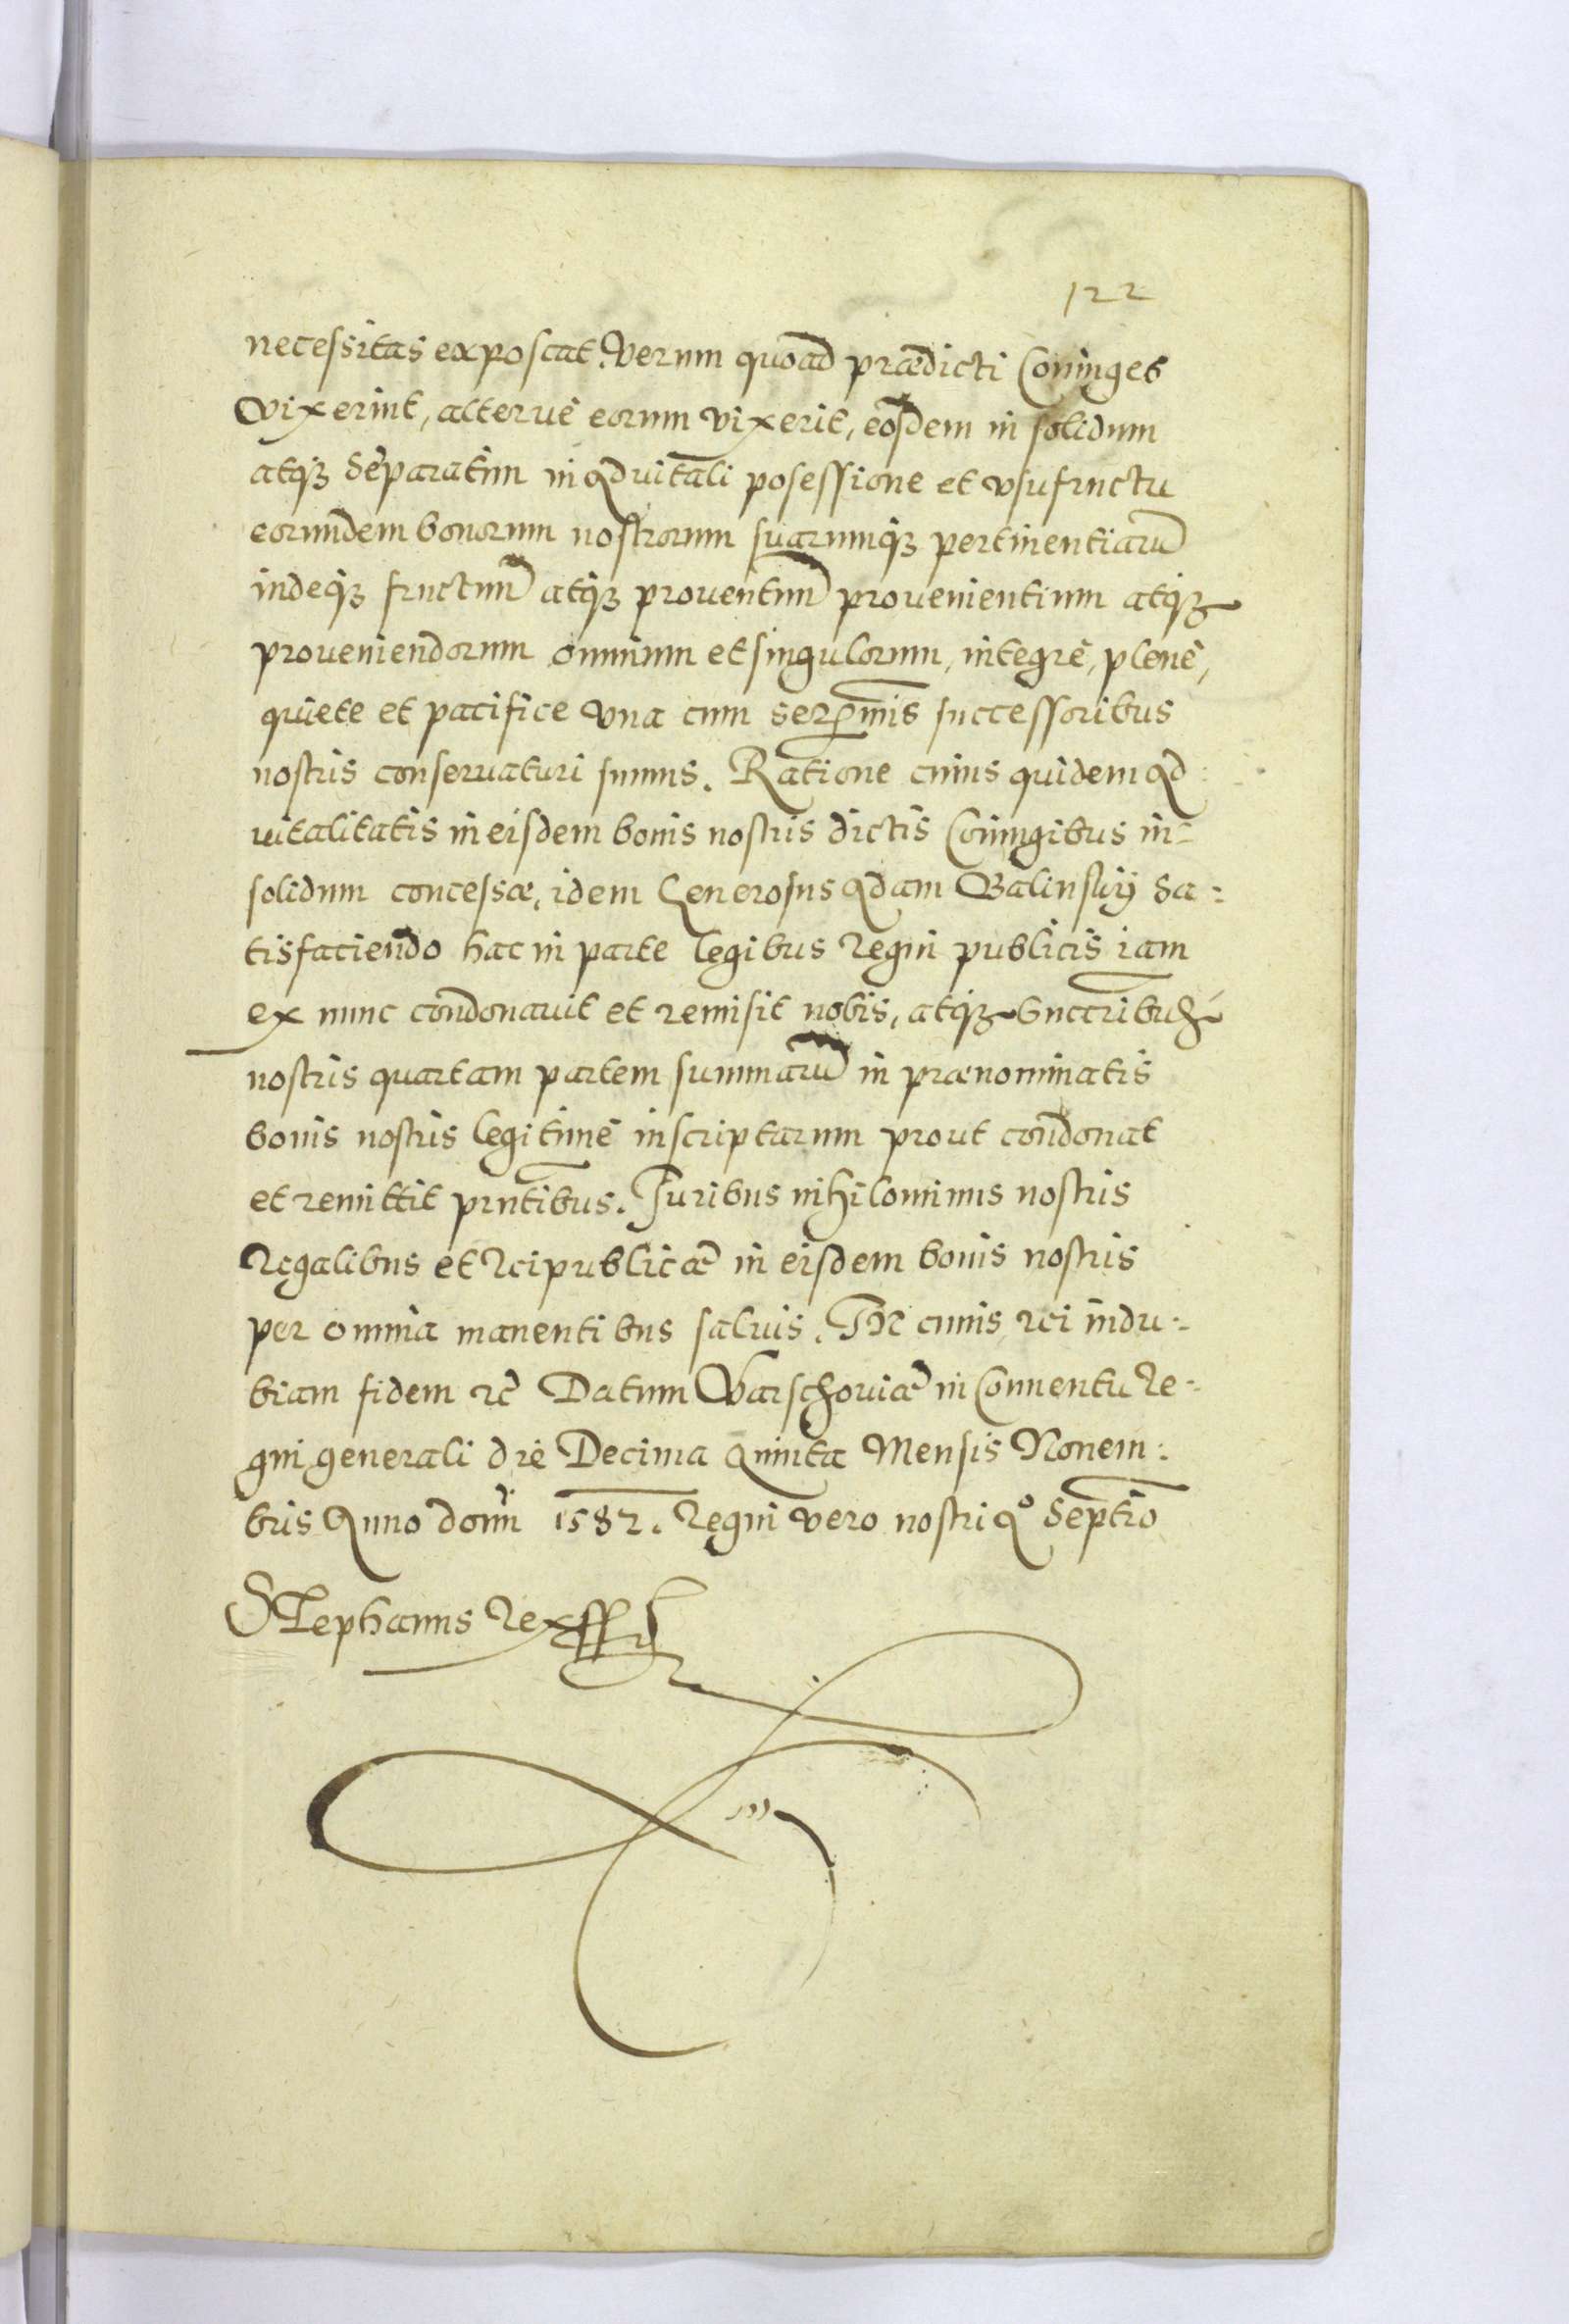 122
necessitas exposcat. Verum quoad prædicti Coniuges
Vixerint, alterue eorum vixerit, eosdem in solidum
atq3 separatim in Aduitali posessione et vsufructu
eorundem bonorum nostrorum suarumq3 pertinentiarū
indeq3 fructuū atq3 prouentuū prouenientium atq3
proueniendorum omnium et singulorum, integrè, plenè,
quiete et pacifice vna cum Serᵐⁱˢ successoribus
nostris conseruaturi sumus. Ratione cuius quidem Ad:
uitalitatis in eisdem bonis nostris dictis Coniugibus in-
solidum concessæ, idem Generosus Adam Walinskij sa:
tisfaciendo hac in parte legibus Regni publicis iam
ex nunc condonauit et remisit nobis, atq3
nostris quartam partem summarū in prænominatis
bonis nostris legitimè inscriptarum prout condonat
et remittit pn̄tibus. Iuribus nihilominus nostris
Regalibus et Reipublicæ in eisdem bonis nostris
per omnia manentibus saluis. In cuius rei indu-
biam fidem &c̄ Datum Warschouiæ in Conuentu Re-
gni generali die Decima Quinta Mensis Nouem:
bris Anno domi 1582. Regni vero nostri Aº Septīo
Stephanus Rex sst